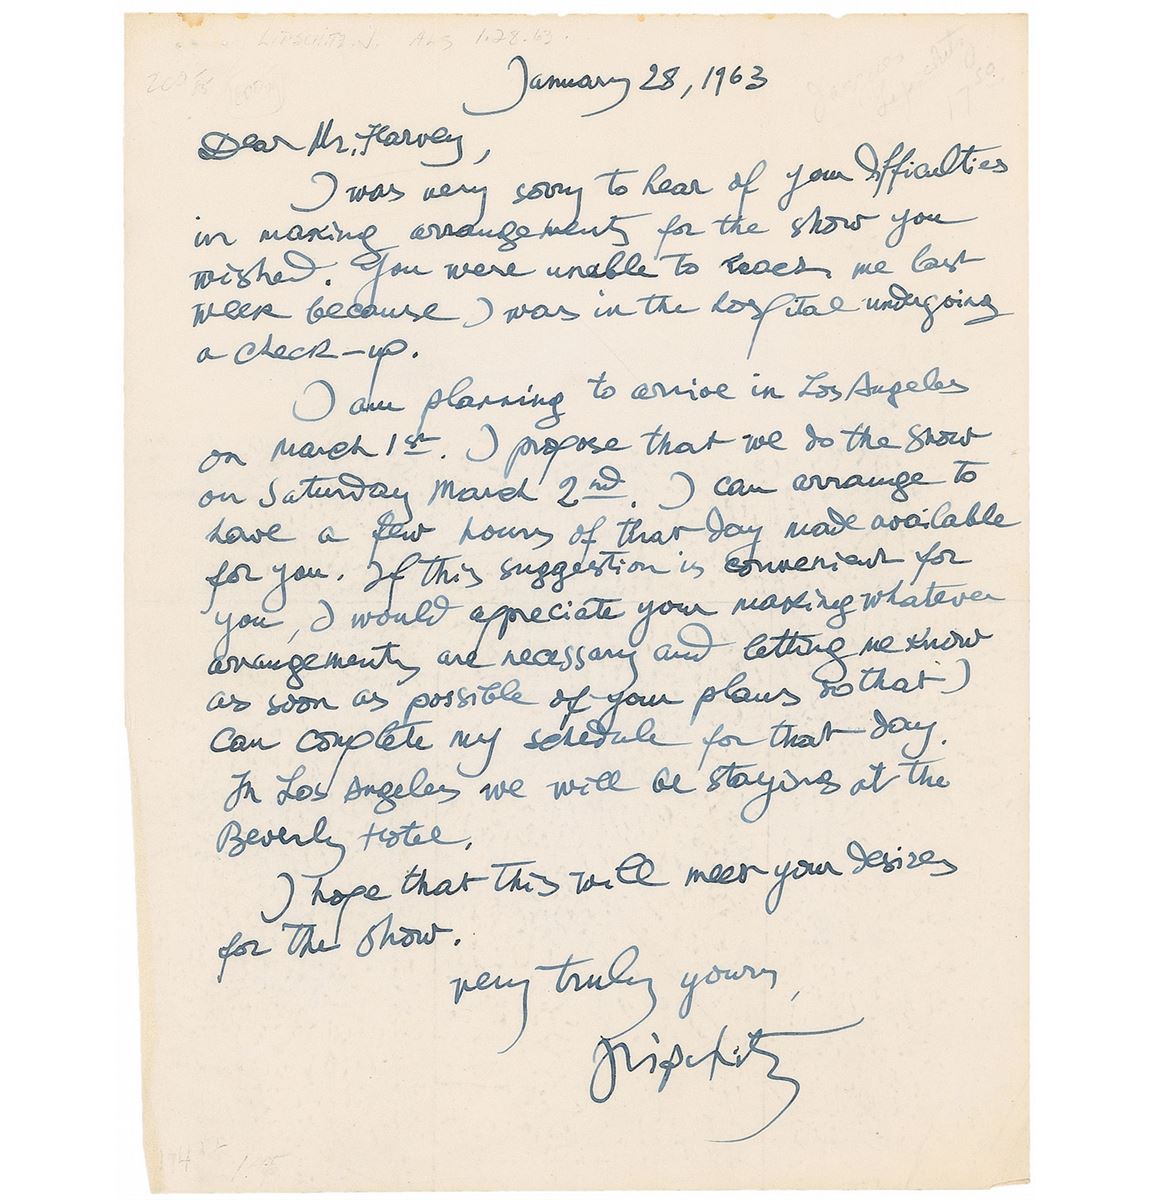 LIPSCHITZ. J. ALS 1.28.63.
January 28, 1963
Dear Mr. Harvey,
I was very sorry to hear of your difficulties
in making arrangements for the show you
wished. You were unable to reach me last
week because I was in the hospital undergoing
a check-up.
I am planning to arrive in Los Angeles
on March 1st. I propose that we do the show
on Saturday March 2nd. I can arrange to
have a few hours of that day made available
for you. If this suggestion is convenient for
you, I would appreciate your making whatever
arrangements are necessary and letting me know
as soon as possible of your plans so that I
can complete my schedule for that day.
In Los Angeles we will be staying at the
Beverly Hotel.
I hope that this will meet your desires
for the show.
very truly yours,
JLipchitz